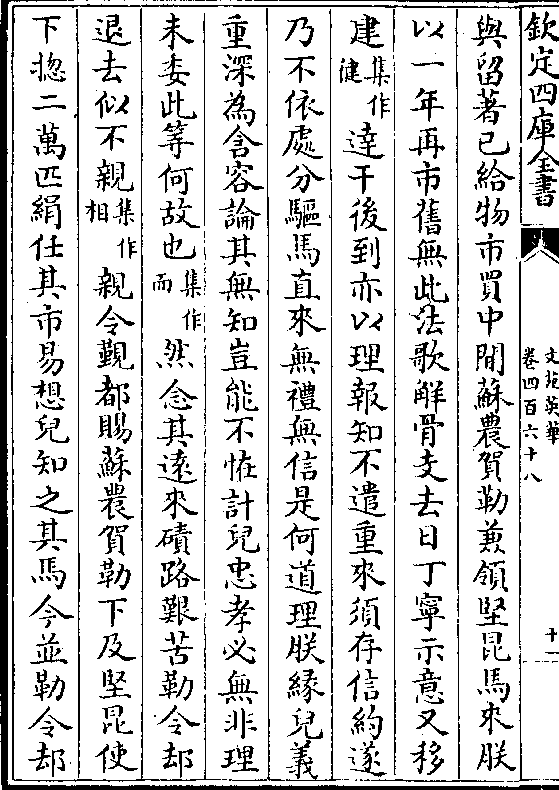 欽定四庫全書
文苑英華
卷四百六十八
十一
與留著已給物市買中間蘇農賀勒兼領堅昆馬來朕
以一年再市舊無此法歌解骨支去日丁寧示意又移
建集作健達干後到亦以理報知不遣重來須存信約遂
乃不依處分驅馬直來無禮無信是何道理朕緣兒義
重深為含容論其無知豈能不恠計兒忠孝必無非理
未委此等何故也集作而然念其遠來磧路艱苦勒令却
退去似不親集作相親令覲都賜蘇農賀勒下及堅昆使
下揔二萬匹絹任其市易想兒知之其馬今並勒令却